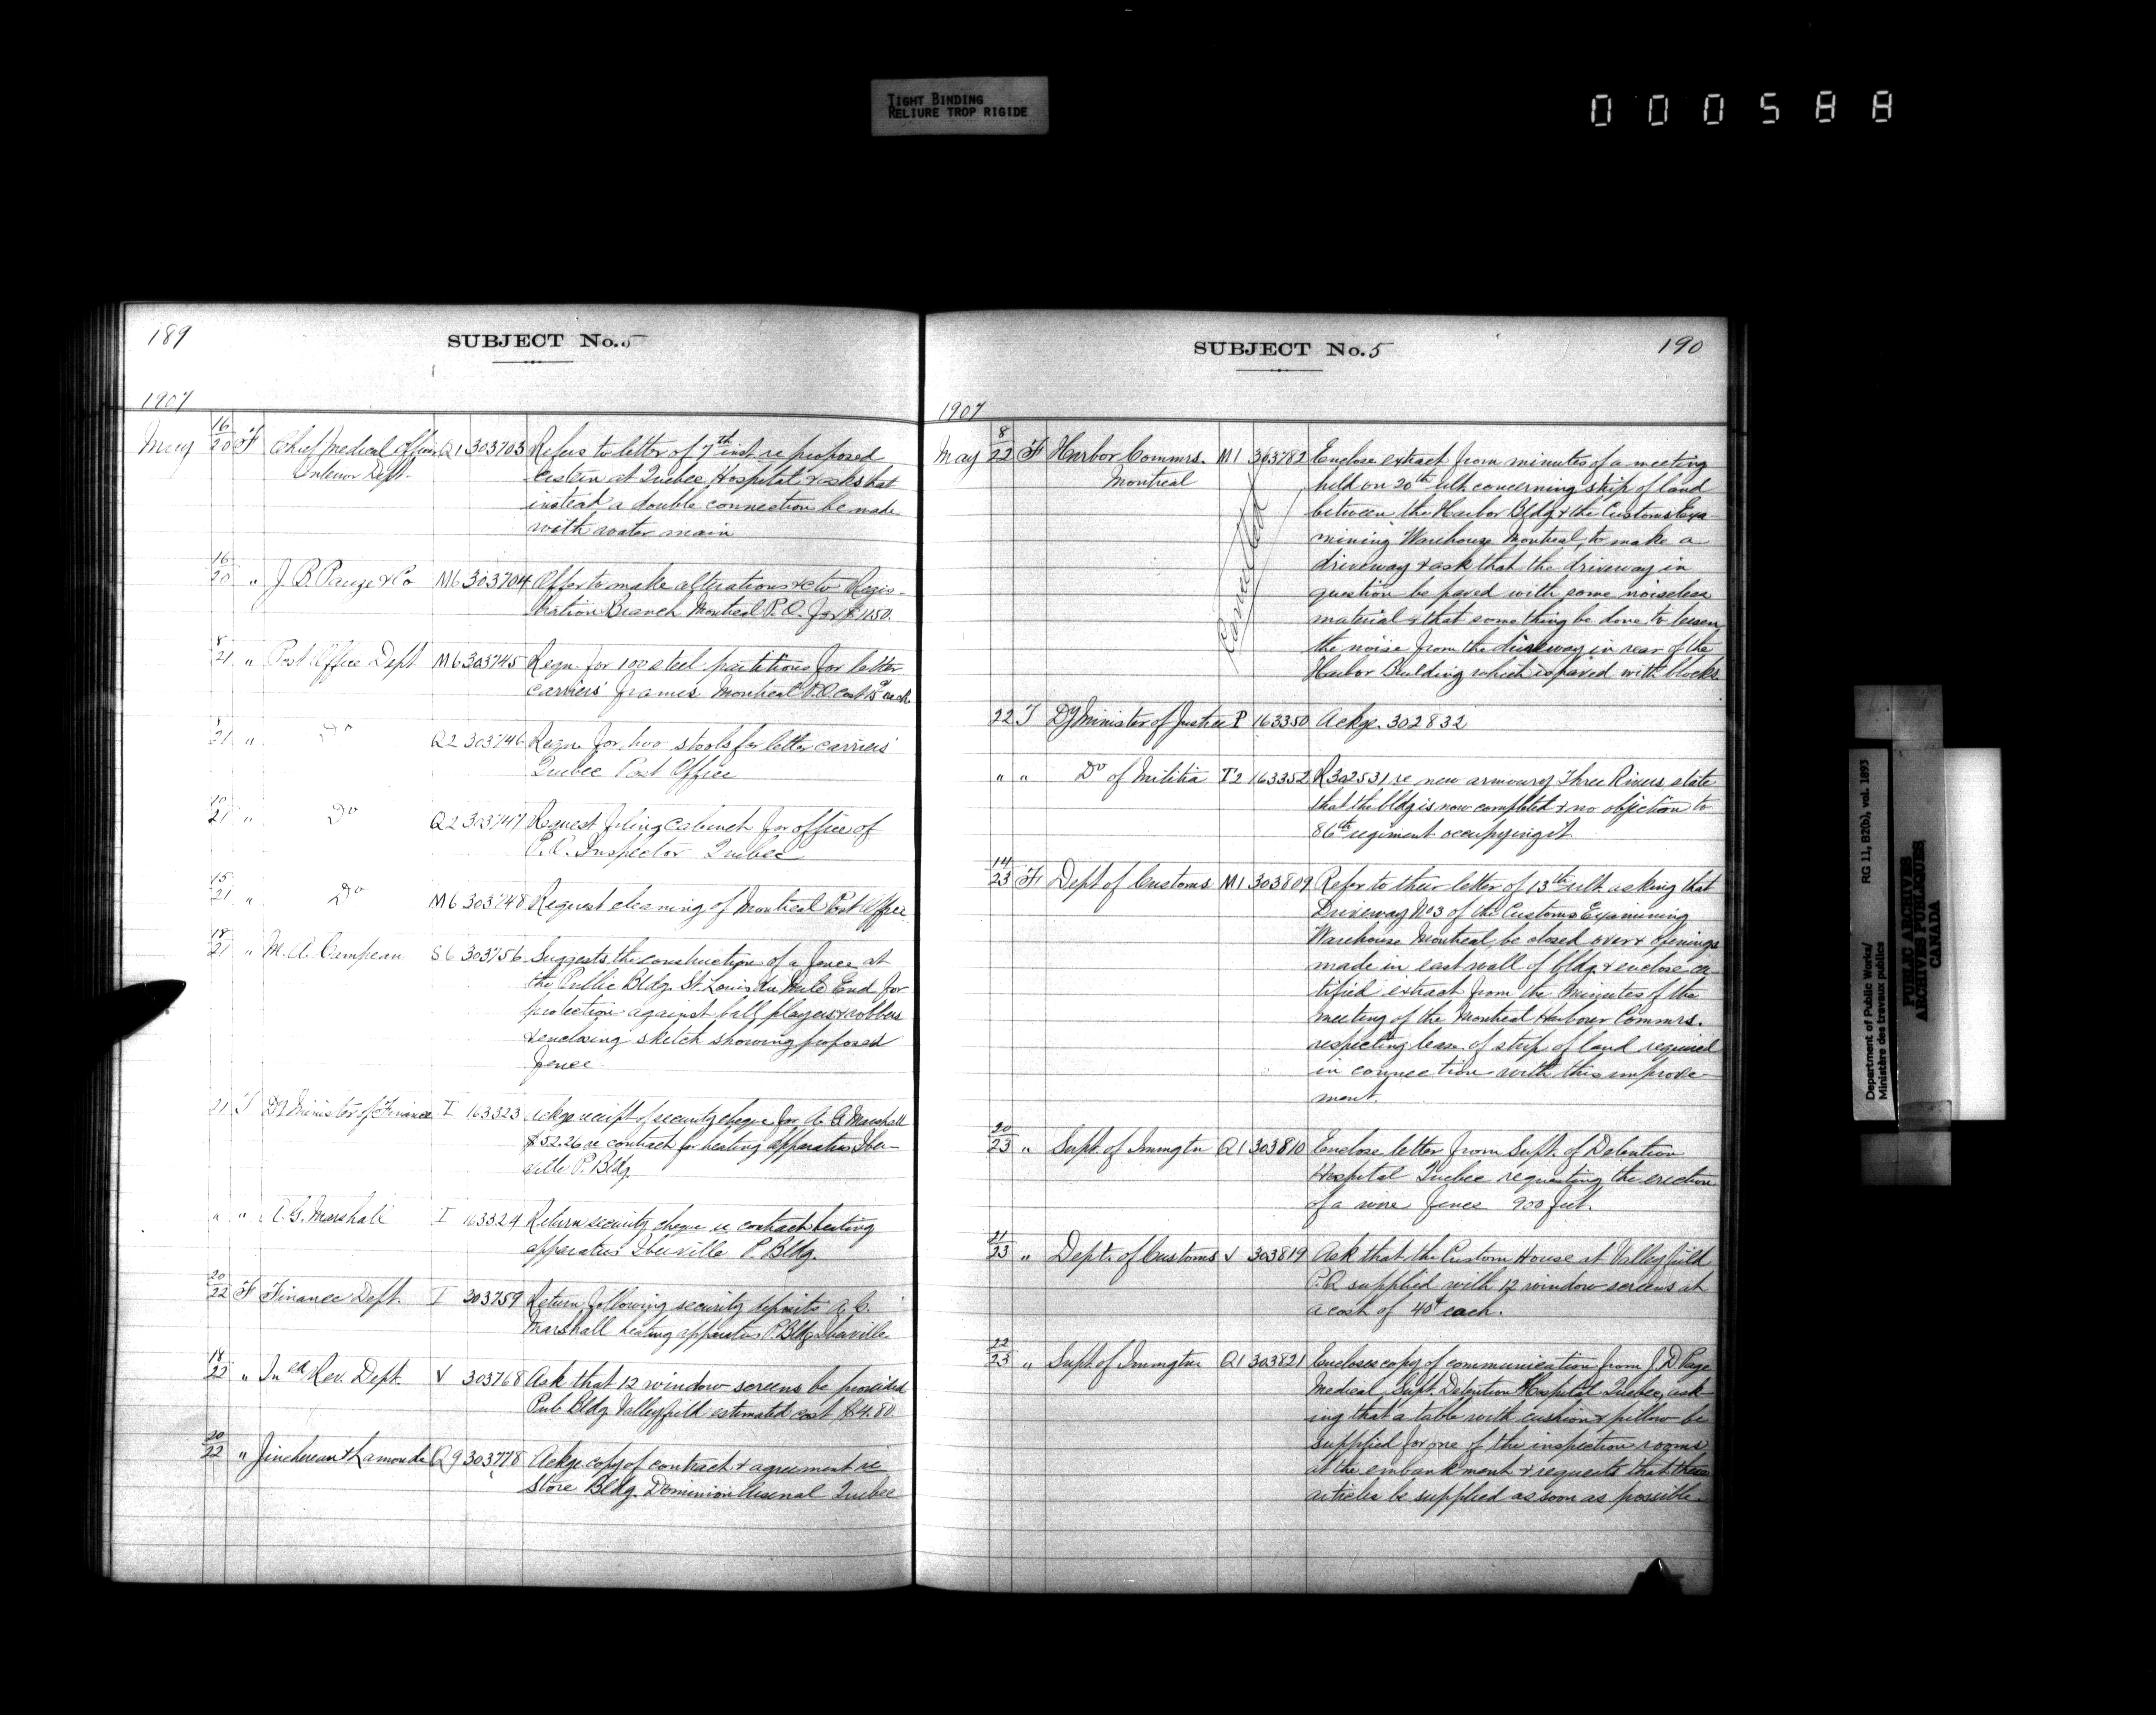 TIGHT BINDING
RELIURE TROP RIGIDE
000588
189
SUBJECT No. 5
1907
May 16/20 F Chief Medical Officer Q1 303703 Refers to letter of 7th inst re proposed
Interior Dept. cistern at Quebec Hospital & asks that
instead a double connection be made
with water main
16/20 " J. B. Pauze & Co M6 303704 Offer to make alterations &c to Regis-
tration Branch Montreal P.O. for $1150.
8/21 " Post Office Dept M6 303745 Reqn. for 100 steel partitions for letter
carriers' frames Montreal P.O. cost 15c each
21 " " Q2 303746 Reqn. for two stools for letter carriers'
Quebec Post Office
10/21 " Do Q2 303747 Request filing cabinet for office of
P.O. Inspector Quebec
15/21 " Do M6 303748 Request cleaning of Montreal Post Office
18/21 " M. A. Campeau S6 303756 Suggests the construction of a fence at
the Public Bldg. St. Louis du Mile End for
protection against ball players & robbers
& enclosing sketch showing proposed
fence
21 T Dy Minister of Finance I 163323 Ackge receipt of security cheque for A. G. Marshall
$52.26 re contract for heating apparatus Iber-
ville P. Bldg.
" " A. G. Marshall I 163324 Return security cheque re contract heating
apparatus Iberville P. Bldg.
20/22 F Finance Dept. I 303759 Return following security deposits A. G.
Marshall heating apparatus P. Bldg Iberville
18/22 " Inld Rev. Dept. V 303768 Ask that 12 window screens be provided
Pub Bldg Valleyfield estimated cost $4.80
20/22 " Jinchereau & Lamonde Q9 303778 Ackge copy of contract & agreement re
Store Bldg. Dominion Arsenal Quebec
SUBJECT No. 5
190
1907
May 8/22 F Harbor Commrs. M1 303782 Enclose extract from minutes of a meeting
Montreal held on 20th ult. concerning strip of land
between the Harbor Bldg & the Customs Exa-
mining Warehouse Montreal, to make a
driveway & ask that the driveway in
question be paved with some noiseless
material & that something be done to lessen
the noise from the driveway in rear of the
Harbor Building which is paved with blocks.
Cancelled
22 T Dy Minister of Justice P 163350 Ackge. 302832
" " Do of Militia T2 163352 R 302531 re new armoury Three Rivers, state
that the bldg is now completed & no objection to
86th regiment occupying it
14/23 F Dept of Customs M1 303809 Refer to their letter of 13th ult. asking that
Driveway No 3 of the Customs Examining
Warehouse Montreal, be closed over & openings
made in east wall of bldg. & enclose cer-
tified extract from the Minutes of the
meeting of the Montreal Harbour Commrs.
respecting lease of strip of land required
in connection with this improve-
ment.
20/23 " Supt. of Immgtn Q1 303810 Enclose letter from Supt. of Detention
Hospital Quebec requesting the erection
of a wire fence 900 feet.
21/23 " Dept. of Customs V 303819 Ask that the Custom House at Valleyfield
P.Q supplied with 12 window screens at
a cost of 40¢ each.
22/23 " Supt of Immgtn Q1 303821 Encloses copy of communication from J. D Page
Medical Supt. Detention Hospital Quebec, ask-
ing that a table with cushion & pillow be
supplied for one of the inspection rooms
at the embankment & requests that these
articles be supplied as soon as possible.
Department of Public Works/ RG 11, B2(b), vol. 1893
Ministère des travaux publics
PUBLIC ARCHIVES
ARCHIVES PUBLIQUES
CANADA